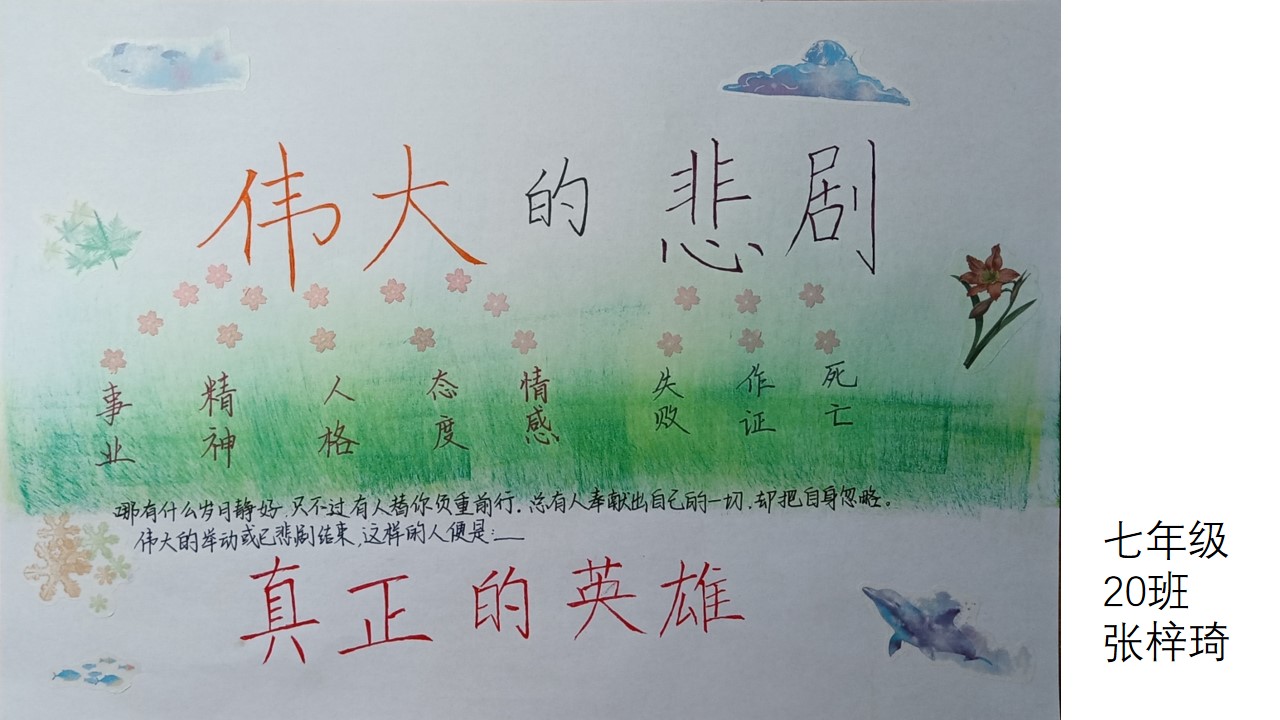 伟大的悲剧
事业 精神 人格 态度 情感 失败 作证 死亡
哪有什么岁月静好，只不过有人替你负重前行。总有人奉献出自己的一切，却把自身忽略。
伟大的举动或已悲剧结束，这样的人便是：__
真正的英雄
七年级
20班
张梓琦